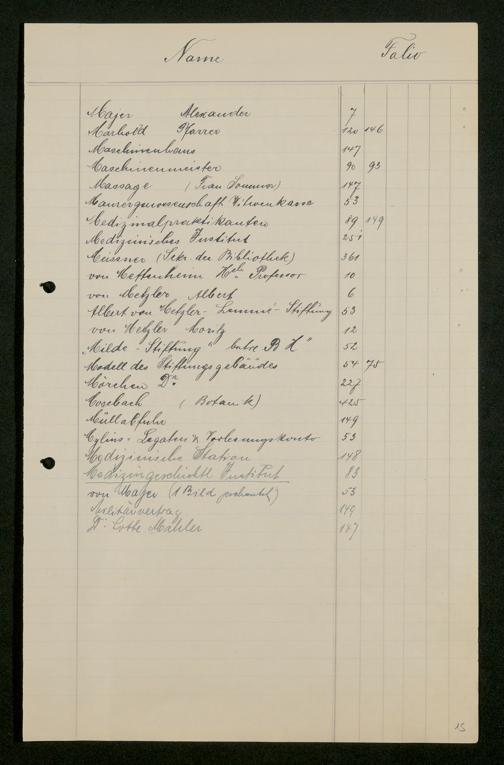 Name Folio
Majer Alexander 7
Marhold Pfarrer 120 146
Maschinenhaus 147
Maschinenmeister 90 93
Massage (Frau Sommer) 147
Maurergenossenschaft Witwenkasse 53
Medizinalpraktikanten 89 149
Medizinisches Institut 251
Meissner (Sekr. der Bibliothek) 361
von Mettenheim Professor 10
von Metzler Albert 6
Albert von Metzler- Stiftung 53
von Metzler Moritz 12
"Milde-Stiftung" betre. 52
Modell des Stiftungsgebäudes 54 75
Mörchen Dr. 227
Mosebach (Botanik) 425
Müllabfuhr 149
Mylius- Legaten & Vorlesungskonto 53
Medizinische Station 148
Medizingeschichtl. Institut 83
von Majer (1 Bild geschenkt) 53
Militärvertrag 149
Dr. Lotte Mahler 147
15